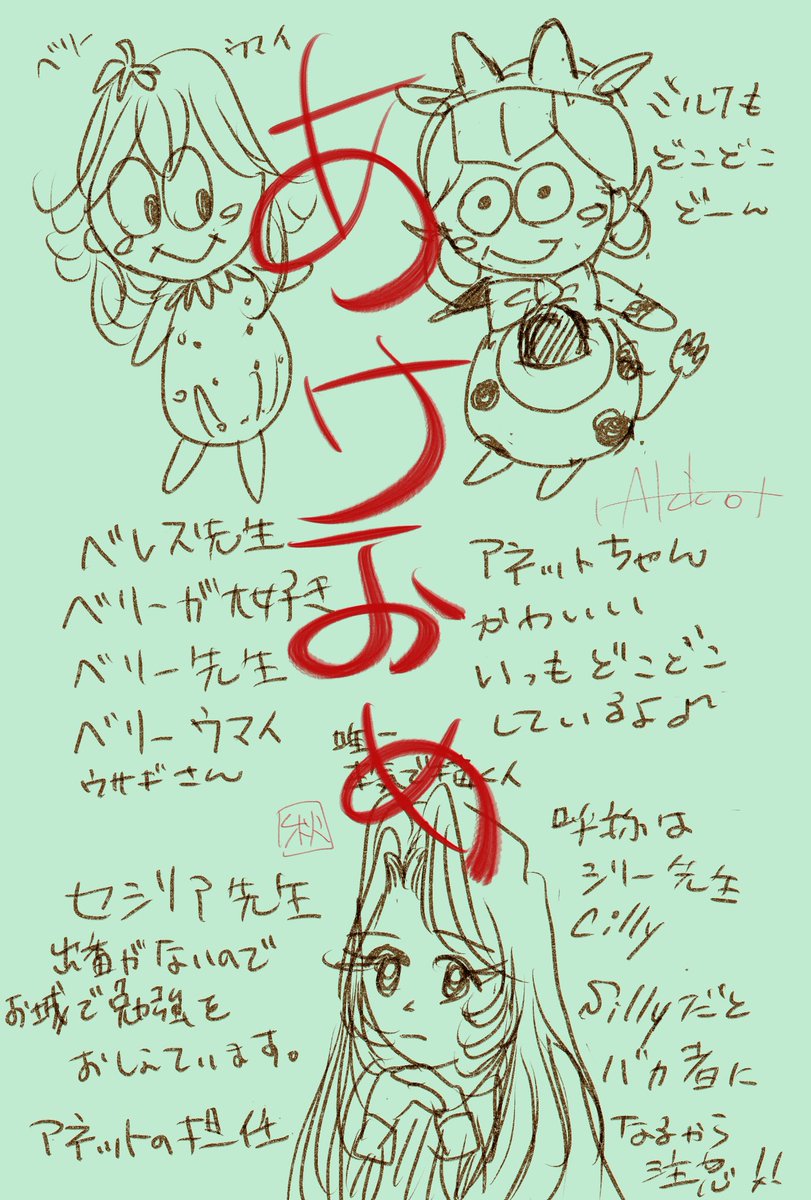 あけおめ
ベリー
ウマイ
ミルクも
どこどこ
どーん
ベレズ先生
ベリーが大好き
ベリー先生
ベリーウマイ
ウサギさん
アネットちゃん
かわいい
いつもどこどこ
しているよ♪
唯一
本気で描く人
秋
セシリア先生
出番がないので
お城で勉強を
おしえています。
アネットの担任
呼称は
シリー先生
Cilly
Sillyだと
バカ者に
なるから
注意!!